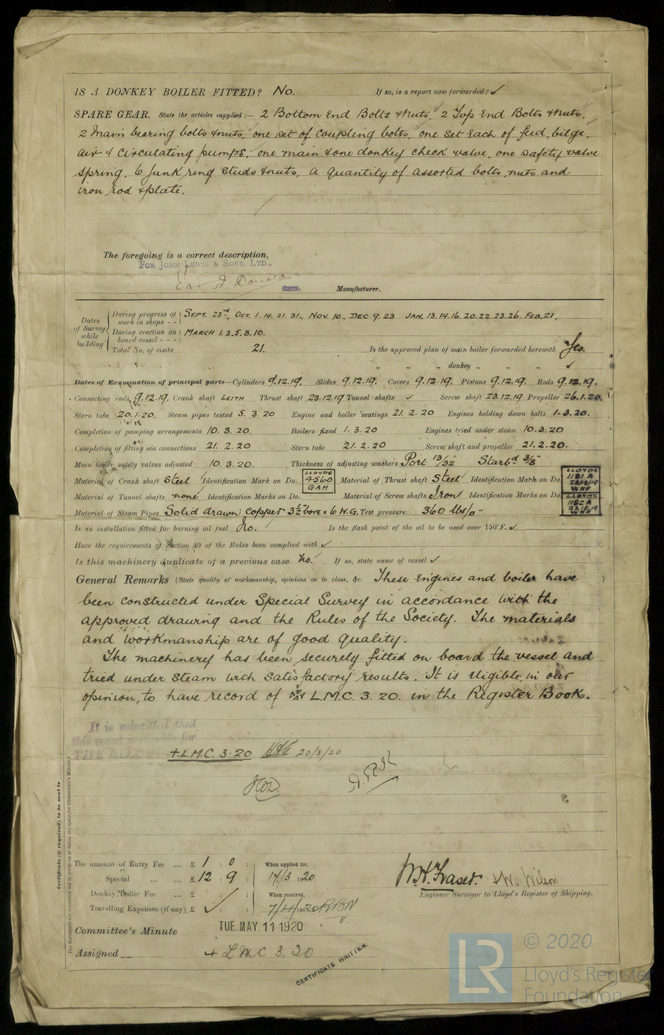 IS A DONKEY BOILER FITTED? No. If so, is a report now forwarded? ✓
SPARE GEAR. State the articles supplied:— 2 Bottom End Bolts & nuts, 2 Top End Bolts & nuts,
2 Main bearing bolts & nuts, one set of coupling bolts, one set each of feed, bilge,
air & circulating pumps, one main & one donkey check valve, one safety valve
spring, 6 junk ring studs & nuts, a quantity of assorted bolts, nuts and
iron rod & plate.
The foregoing is a correct description,
FOR JOHN LEWIS & SONS, LTD.,
Manufacturer.
Dates of Survey while building
During progress of work in shops - - Sept. 23rd, Oct. 1. 14. 21. 31., Nov. 10., Dec. 9. 23 Jan. 13. 14. 16. 20. 22. 23. 26. Feb. 21.
During erection on board vessel - - - March 1. 3. 5. 8. 10.
Total No. of visits 21. Is the approved plan of main boiler forwarded herewith Yes
" " " donkey " " " ✓
Dates of Examination of principal parts—Cylinders 9.12.19. Slides 9.12.19. Covers 9.12.19. Pistons 9.12.19. Rods 9.12.19.
Connecting rods 9.12.19. Crank shaft Leith Thrust shaft 23.12.19. Tunnel shafts ✓ Screw shaft 23.12.19. Propeller 26.1.20.
Stern tube 20.1.20. Steam pipes tested 5.3.20 Engine and boiler seatings 21.2.20 Engines holding down bolts 1.3.20.
Completion of pumping arrangements 10.3.20. Boilers fixed 1.3.20 Engines tried under steam 10.3.20
Completion of fitting sea connections 21.2.20 Stern tube 21.2.20 Screw shaft and propeller 21.2.20.
Main boiler safety valves adjusted 10.3.20. Thickness of adjusting washers Port 13/32 Starbd 3/8
Material of Crank shaft Steel Identification Mark on Do. LLOYDS 4560 GAH Material of Thrust shaft Steel Identification Mark on Do. LLOYDS 1181 A 23/12/19 WHF
Material of Tunnel shafts none Identification Marks on Do. Material of Screw shafts Iron Identification Marks on Do. LLOYDS 1182 A 23.12.19 WHF
Material of Steam Pipes Solid drawn copper 3½" bore × 6 W.G. Test pressure 360 lbs/□"
Is an installation fitted for burning oil fuel No. Is the flash point of the oil to be used over 150°F. ✓
Have the requirements of Section 49 of the Rules been complied with ✓
Is this machinery duplicate of a previous case No. If so, state name of vessel ✓
General Remarks (State quality of workmanship, opinions as to class, &c. These Engines and boiler have
been constructed under Special Survey in accordance with the
approved drawing and the Rules of the Society. The materials
and workmanship are of good quality.
The machinery has been securely fitted on board the vessel and
tried under steam with satisfactory results. It is eligible, in our
opinion, to have record of L.M.C. 3. 20. in the Register Book.
It is submitted that
this vessel is eligible for
THE
+ L.M.C. 3. 20 20/3/20
Certificate (if required) to be sent to
The amount of Entry Fee ... £ 1 : 0 : When applied for,
Special ... ... £ 12 : 9 : 17/3/20
Donkey Boiler Fee ... ... £ : : When received,
Travelling Expenses (if any) £ ✓ : : 7/4/20
W.H. Fraser. & W. Wilson
Engineer Surveyor to Lloyd's Register of Shipping.
Committee's Minute TUE. MAY. 11 1920
Assigned + L M C 3. 20
CERTIFICATE WRITTEN.
LR
© 2020
Lloyd's Register
Foundation